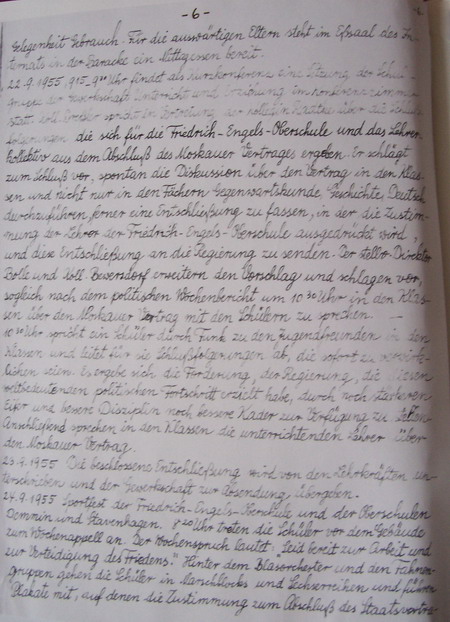 - 6 -
Gelegenheit Gebrauch. Für die auswärtigen Eltern steht im Eßsaal des In-
ternats in der Baracke ein Mittagessen bereit.
22.9.1955 9 15 - 9 30 Uhr findet als Kurzkonferenz eine Sitzung der Schul-
gruppe der Gewerkschaft Unterricht und Erziehung im Konferenzzimmer
statt. Koll. spricht in Vertretung der Kollegin über die Schluß-
folgerungen, die sich für die Friedrich-Engels-Oberschule und das Lehrer-
kollektiv aus dem Abschluß des Moskauer Vertrages ergeben. Er schlägt
zum Schluß vor, spontan die Diskussion über den Vertrag in den Klas-
sen und nicht nur in den Fächern Gegenwartskunde, Geschichte, Deutsch
durchzuführen, ferner eine Entschließung zu fassen, in der die Zustim-
mung der Lehrer der Friedrich-Engels-Oberschule ausgedrückt wird,
und diese Entschließung an die Regierung zu senden. Der stellv. Direktor
Bolle und Koll. Bewersdorf erweitern den Vorschlag und schlagen vor,
sogleich nach dem politischen Wochenbericht um 10 30 Uhr in den Klas-
sen über den Moskauer Vertrag mit den Schülern zu sprechen. —
10 30 Uhr spricht ein Schüler durch Funk zu den Jugendfreunden in den
Klassen und leitet für sie Schlußfolgerungen ab, die sofort zu verwirk-
lichen seien. Es ergebe sich die Forderung, der Regierung, die diesen
weltbedeutenden politischen Fortschritt erzielt habe, durch noch stärkeren
Eifer und bessere Disziplin noch bessere Kader zur Verfügung zu stellen.
Anschließend sprechen in den Klassen die unterrichtenden Lehrer über
den Moskauer Vertrag.
23.9.1955 Die beschlossene Entschließung wird von den Lehrkräften un-
terschrieben und der Gewerkschaft zur Absendung übergeben.
24.9.1955 Sportfest der Friedrich-Engels-Oberschule und der Oberschulen
Demmin und Stavenhagen. 8 20 Uhr treten die Schüler vor dem Gebäude
zum Wochenappell an. Der Wochenspruch lautet: „Seid bereit zur Arbeit und
zur Verteidigung des Friedens." Hinter dem Blasorchester und den Fahnen-
gruppen gehen die Schüler in Marschblocks und Sechserreihen und führen
Plakate mit, auf denen die Zustimmung zum Abschluß des Staatsvertra-